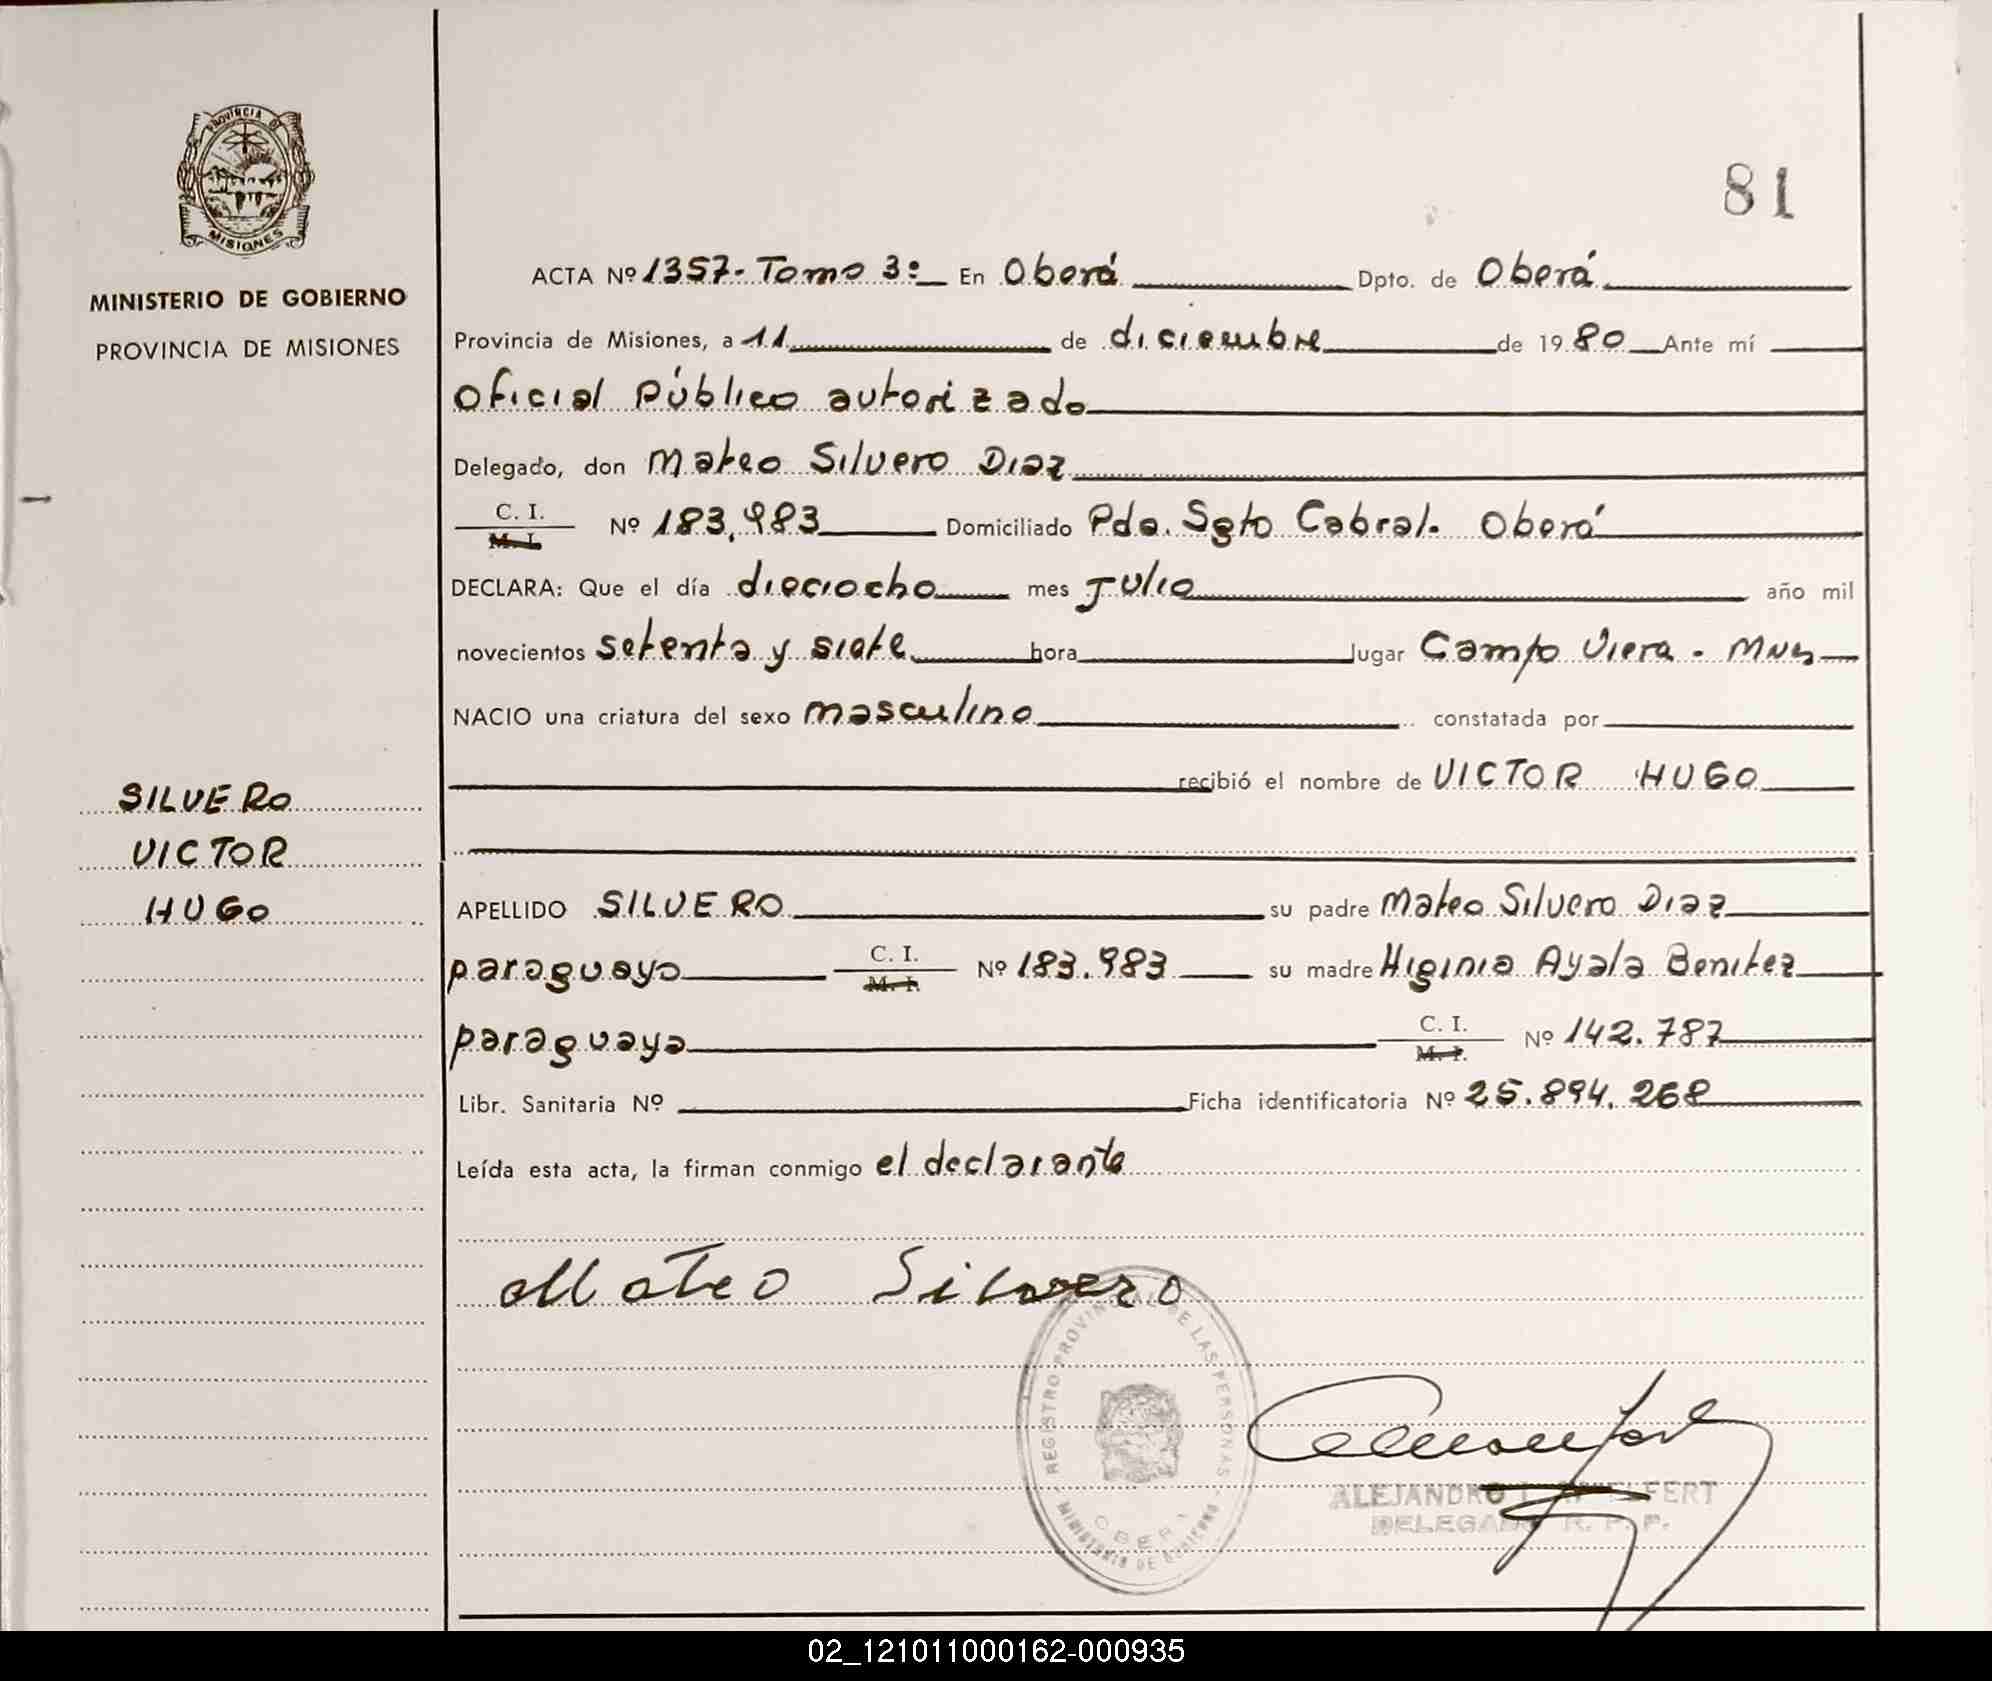 PROVINCIA DE
MISIONES
MINISTERIO DE GOBIERNO
PROVINCIA DE MISIONES
81
ACTA Nº 1357- Tomo 3: En Oberá Dpto. de Oberá
Provincia de Misiones, a 11 de diciembre de 1980 Ante mí
Oficial Público autorizado
Delegado, don Mateo Silvero Diaz
C. I. M. I. Nº 183.983 Domiciliado Pda. Sgto Cabral. Oberá
DECLARA: Que el día dieciocho mes Julio año mil
novecientos setenta y siete hora lugar Campo Viera - Mnes
NACIO una criatura del sexo masculino constatada por
recibió el nombre de VICTOR HUGO
SILVERO
VICTOR
HUGO
APELLIDO SILVERO su padre Mateo Silvero Diaz
paraguayo C. I. M. I. Nº 183.983 su madre Higinia Ayala Benitez
paraguaya C. I. M. I. Nº 142.787
Libr. Sanitaria Nº Ficha identificatoria Nº 25.894.268
Leída esta acta, la firman conmigo el declarante
Mateo Silvero
REGISTRO PROVINCIAL DE LAS PERSONAS
OBERA
MINISTERIO DE GOBIERNO
ALEJANDRO
DELEGADO R. P. P.
02_121011000162-000935